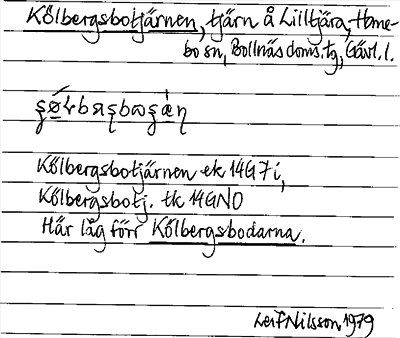 Kölbergsbotjärnen, tjärn å Lilltjära, Hane-
bo sn, Bollnäs doms. tg, Gävl. l.
Kölbergsbotjärnen ek 14G7i,
Kölbergsbotj. tk 14GNO
Här låg förr Kölbergsbodarna.
Leif Nilsson 1979